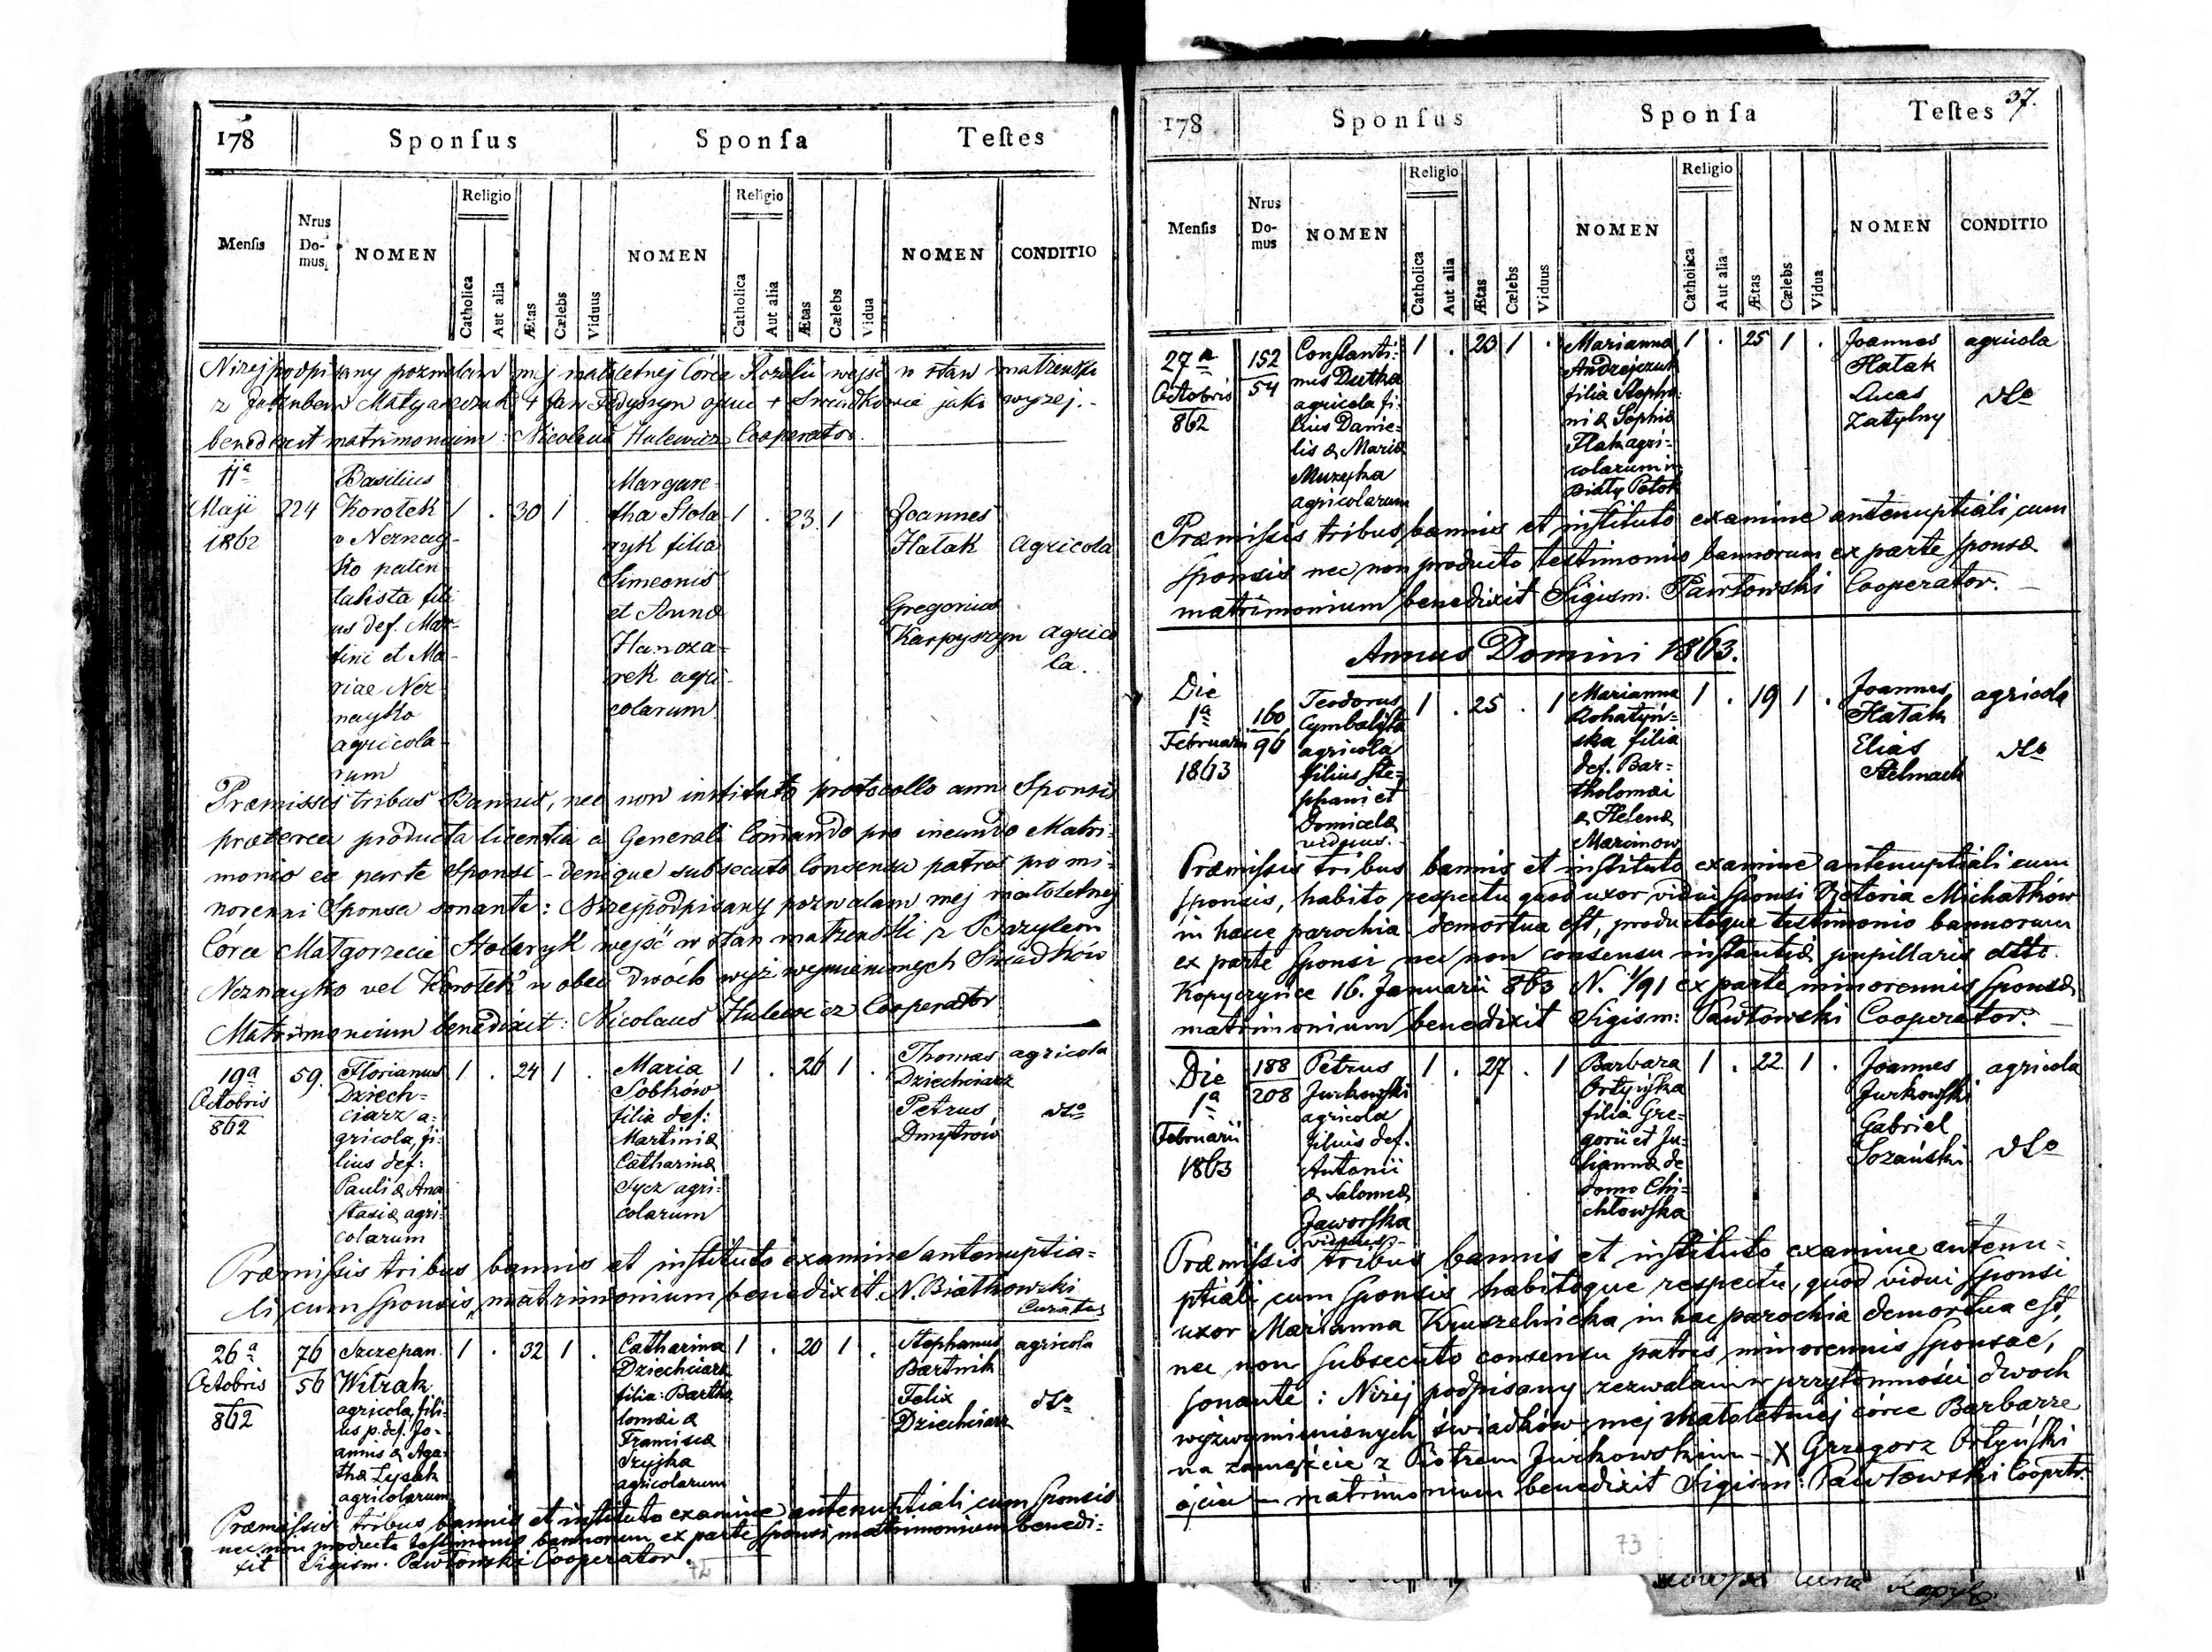 178 Sponſus Sponſa Teſtes
Menſis Nrus Do-mus, NOMEN Religio Catholica Aut alia Ætas Cælebs Viduus NOMEN Religio Catholica Aut alia Ætas Cælebs Vidua NOMEN CONDITIO
Niżej podpisany pozwalam mej małoletnej Córce Rozalii wejść w stan małżeński
z Matyaszczuk + Jan Fedyszyn ojciec + Świadkowie jako wyżej.-
benedixit matrimonium: Nicolaus Hulewicz Cooperator
11a
Maji
1862
224
Basilius
Korotek
v Neznay-
ko paten
talista fili
us def. Mar-
tini et Ma-
riae Nez-
nayko
agricola-
rum
1 . 30 1
Margare-
tha Stola-
ryk filia
Simeonis
et Annæ
Hanoza-
rek agri-
colarum
1 . 23 1
Joannes
Hałak Agricola
Gregorius
Karpyszyn agrico
la.
Præmissis tribus Bannis, nec non instituto protocollo cum Sponsis
præterea producta licentia a Generali Comando pro ineundo Matri-
monio ex parte Sponsi - denique subsecuto Consensu patris pro mi-
norenni Sponsa sonante: Niżejpodpisany pozwalam mej małoletnej
Córce Małgorzecie Stolaryk wejść w stan małżeński z Bazylem
Neznayko vel Korotek w obec dwóch wyż wymienionych Świadków
Matrimonium benedixit: Nicolaus Hulewicz Cooperator
19a
Octobris
862
59.
Florianus
Dziech-
ciarz a-
gricola, fi-
lius def:
Pauli & Ana
stasiæ agri-
colarum
1 . 24 1 .
Maria
Sobków
filia def:
Martini &
Catharinæ
Sycz agri-
colarum
1 . 26 1 .
Thomas agricola
Dziechciarz
Petrus dto
Dmytrów
Præmiſsis tribus bannis et inſtituto examine antenuptia-
li cum ſponsis, matrimonium benedixit N. Białkowski
Curatus
26a
Octobris
862
76
56
Szczepan
Witrak
agricola, fili-
us p. def. Jo-
annis & Aga-
thæ Łysak
agricolarum
1 . 32 1 .
Catharina
Dziechciarz
filia: Bartho
lomæi &
Franciscæ
Szyjka
agricolarum
1 . 20 1 .
Stephanus agricola
Bartnik
Felix dto
Dziechciarz
Præmiſsis tribus bannis et inſtituto examine antenuptiali cum ſponsis
nec non producto testimonio bannorum ex parte ſponsi matrimonium benedi-
xit Sigism. Pawłowski Cooperator.
72
37.
178 Sponſus Sponſa Teſtes
Menſis Nrus Do-mus NOMEN Religio Catholica Aut alia Ætas Cælebs Viduus NOMEN Religio Catholica Aut alia Ætas Cælebs Vidua NOMEN CONDITIO
27a
Octobris
862
152
54
Conſtanti-
nus Dutka
agricola fi-
lius Danie-
lis & Mariæ
Muzyka
agricolarum
1 . 23 1 .
Marianna
Andrejczuk
filia Stepha-
ni & Sophiæ
Flak agri-
colarum in
Biały Potok
1 . 25 1 .
Joannes agricola
Hałak
Lucas dto
Zatylny
Præmiſsis tribus bannis et inſtituto examine antenuptiáli cum
ſponsis nec non producto testimonio bannorum ex parte ſponsæ
matrimonium benedixit Sigism. Pawłowski Cooperator.
Annus Domini 1863.
Die
1a
Februarii
1863
160
96
Teodorus
Cymbaliſta
agricola
filius Ste-
phani et
Domicelæ
viduus.
1 . 25 . 1
Marianna
Rohatyń-
ska filia
def. Bar-
tholomæi
& Helenæ
Marcinow
1 . 19 1 .
Joannes agricola
Hałak
Elias dto
Stelmach
Præmiſsis tribus bannis et inſtituto examine antenuptiáli cum
ſponsis, habito respectu quod uxor vidui ſponsi Victoria Michałków
in hacce parochia demortua eſt, productoque testimonio bannorum
ex parte ſponsi nec non consensu inſtantiæ pupillaris ddto.
Kopyczyńce 16. Januarii 863 N. 1/91 ex parte minorennis ſponsæ
matrimonium benedixit Sigism: Pawłowski Cooperator.
Die
1a
Februarii
1863
188
208
Petrus
Jurkowſki
agricola
filius def.
Antonii
& Salomeæ
Jaworſka
viduus
1 . 27 . 1
Barbara
Ortyńſka
filia Gre-
gorii et Ju-
liannæ de
domo Chi-
chłowſka
1 . 22 1 .
Joannes agricola
Jurkowſki
Gabriel
Sozański dto
Præmiſsis tribus bannis et inſtituto examine antenu-
ptiáli cum ſponsis habitoque respectu, quod vidui ſponsi
uxor Marianna Kruszelnicka in hac parochia demortua eſt,
nec non ſubsecuto consensu patris minorennis ſponsae,
ſonante: Niżej podpisany zezwalam w przytomności dwoch
wyżwymienionych świadków mej małoletnej córce Barbarze
na zamęście z Piotrem Jurkowskim - X Grzegorz Ortyńſki
ojciec - matrimonium benedixit Sigism: Pawłowski Cooprtr.
73